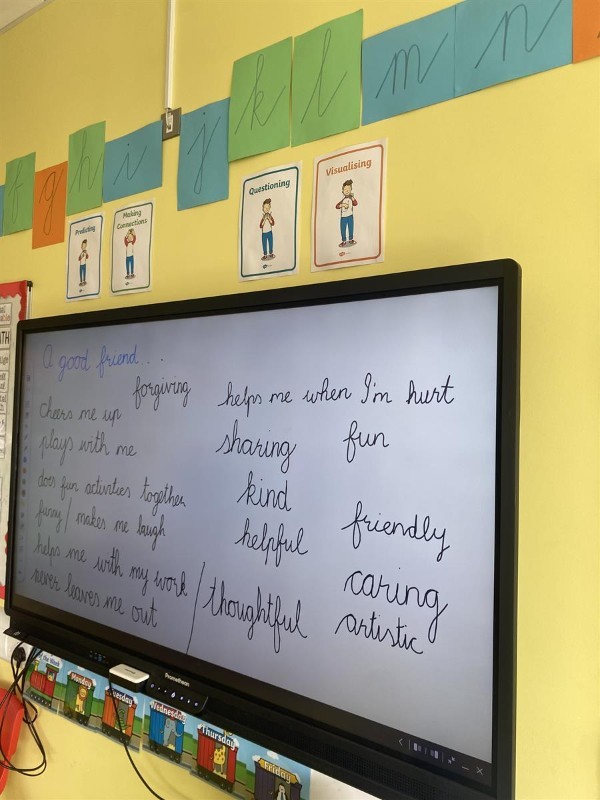 f g h i j k l m n
Predicting
Making
Connections
Questioning
Visualising
A good friend . . .
forgiving
cheers me up
plays with me
does fun activities together
funny / makes me laugh
helps me with my work
never leaves me out
helps me when I'm hurt
sharing
fun
kind
helpful
friendly
thoughtful
caring
artistic
Promethean
the Week
Monday
Tuesday
Wednesday
Thursday
Friday